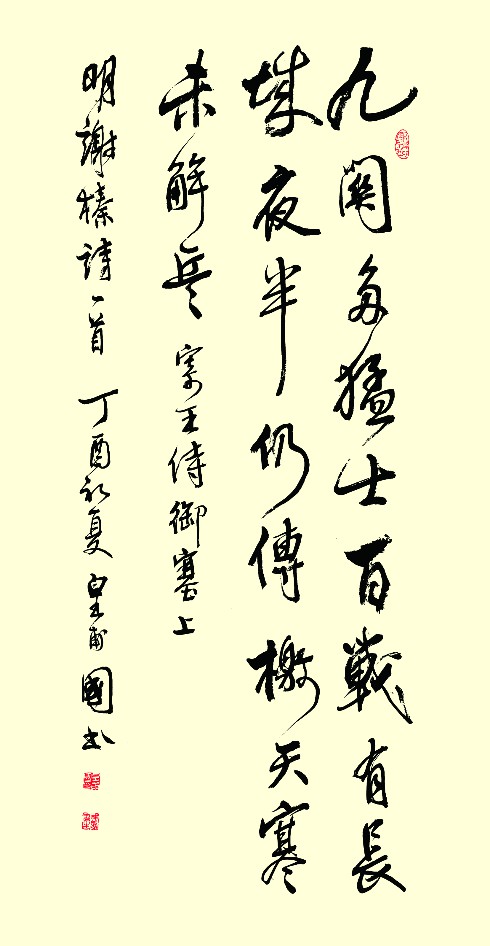 九關多猛士百戰有長
城夜半仍傳檄天寒
未解兵 寄王侍御塞上
明謝榛詩一首 丁酉初夏 皇甫國书